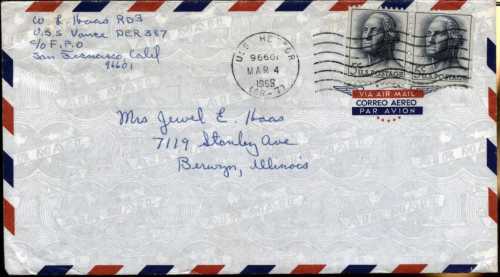 W E Haas RD3
U.S.S Vance DER 387
c/o F.P.O
San Francisco, Calif
96601
U.S.S. HECTOR
96601
MAR 4
(AR-7)
5¢ U.S. POSTAGE
5¢ U.S. POSTAGE
VIA AIR MAIL
CORREO AEREO
PAR AVION
Mrs Jewel E. Haas
7119 Stanley Ave
Berwyn, Illinois